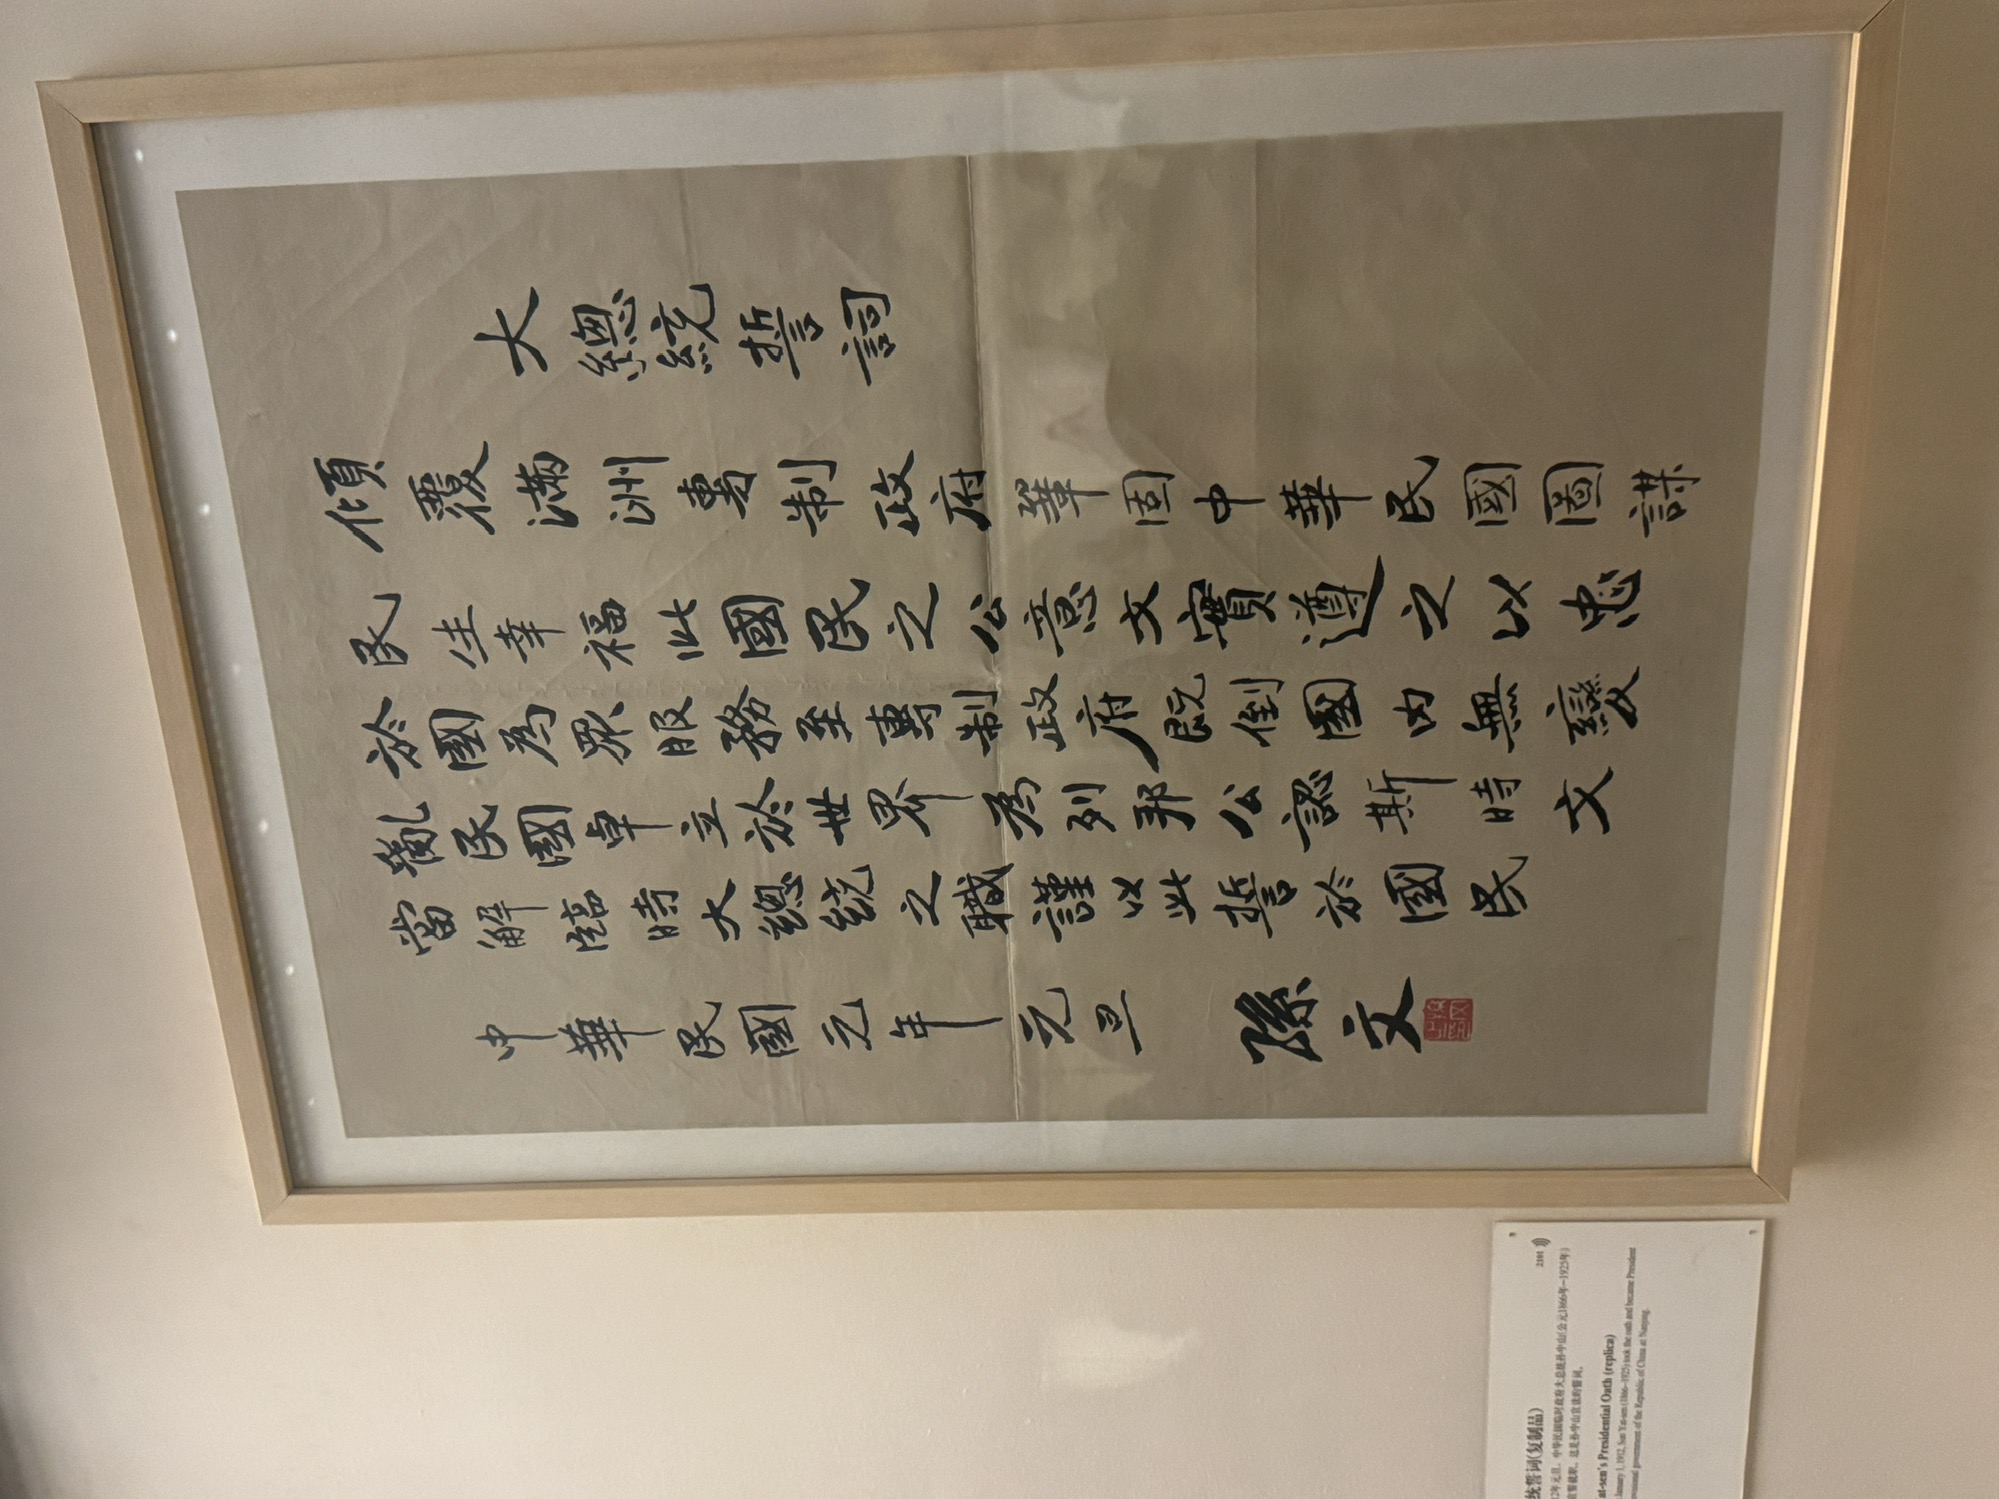 大總統誓詞
傾覆滿洲專制政府鞏固中華民國圖謀
民生幸福此國民之公意文實遵之以忠
於國為眾服務至專制政府既倒國內無變
亂民國卓立於世界為列邦公認斯時文
當解臨時大總統之職謹以此誓於國民
中華民國元年元旦 孫文
统誓词(复制品)
2101
年元旦，中华民国临时政府大总统孙中山(公元1866年—1925年)
宣誓就职。这是孙中山宣读的誓词。
at-sen's Presidential Oath (replica)
January 1, 1912, Sun Yat-sen (1866–1925) took the oath and became President
government of the Republic of China at Nanjing.